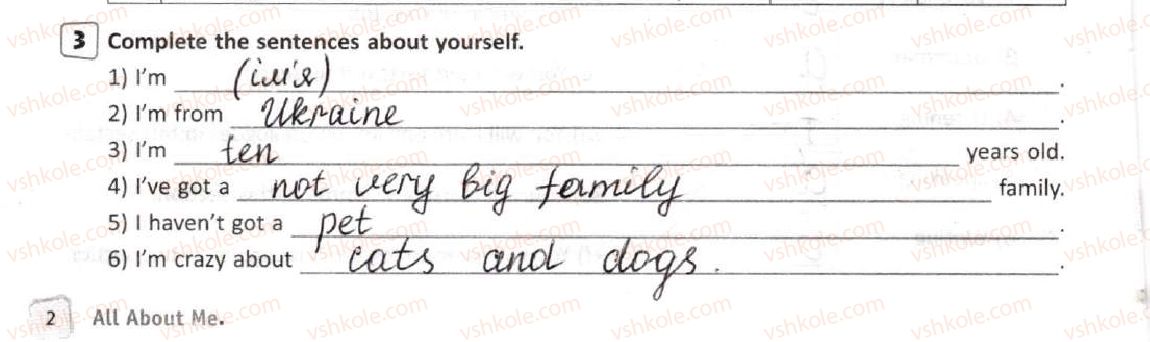 3 Complete the sentences about yourself.
1) I'm (ім'я).
2) I'm from Ukraine.
3) I'm ten years old.
4) I've got a not very big family family.
5) I haven't got a pet.
6) I'm crazy about cats and dogs. .
2 All About Me.
vshkole.com